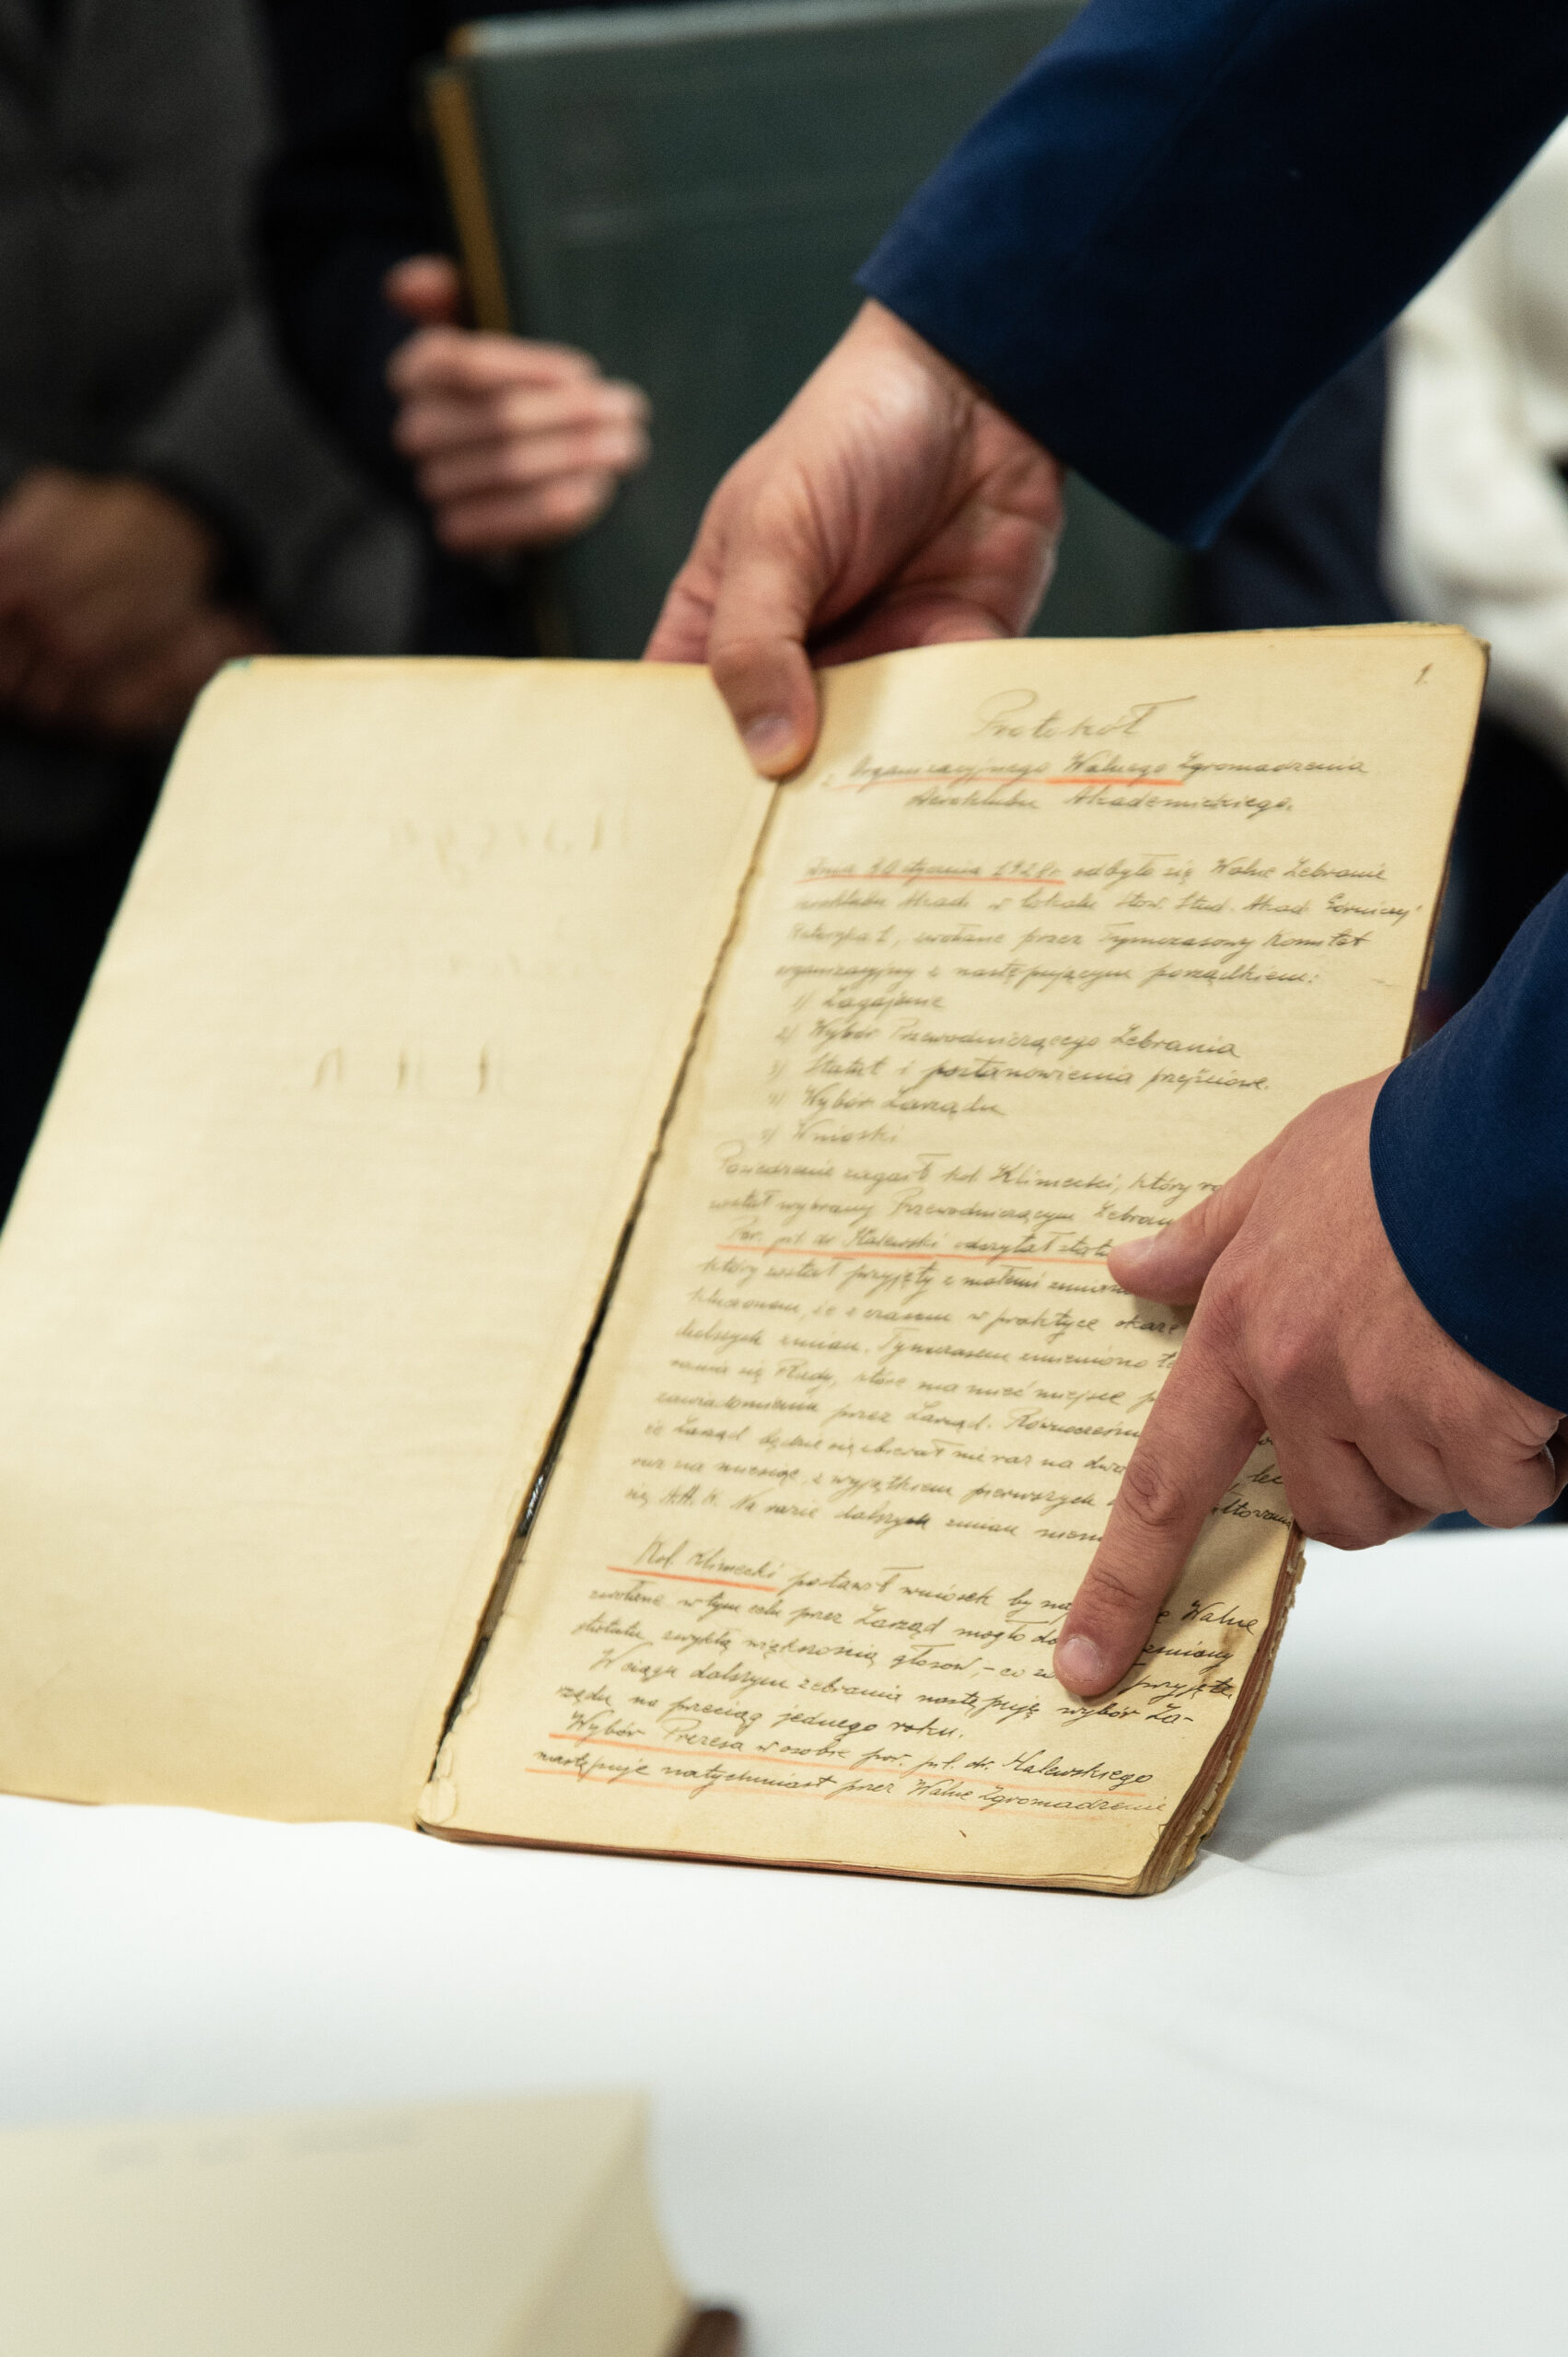 1.
Protokół
z Organizacyjnego Walnego Zgromadzenia
Aeroklubu Akademickiego.
Dnia 10 stycznia 1928 r. odbyło się Walne Zebranie
Akad. w lokalu Stow. Stud. Akad. Górniczej
1, zwołane przez Tymczasowy Komitet
organizacyjny z następującym porządkiem:
1/ Zagajenie
2/ Wybór Przewodniczącego Zebrania
3/ Statut i postanowienia przejściowe.
4/ Wybór Zarządu
5/ Wnioski
Posiedzenie zagaił kol. Klimecki, który
został wybrany Przewodniczącym
Por. pil. dr. Halewski odczytał
który został przyjęty z małemi
że z czasem w praktyce
dalszych zmian. Tymczasem zmieniono
się Rady, które ma mieć miejsce
zawiadomienia przez Zarząd.
że Zarząd będzie się zbierał nie raz na
raz na miesiąc, z wyjątkiem pierwszych
się A.A.K. Na razie dalszych zmian
Kol. Klimecki postawił wniosek by Walne
zwołane w tym celu przez Zarząd mogło zmiany
statutu zwykłą większością głosów, - co
W ciągu dalszym zebrania następuje wybór Za-
rządu na przeciąg jednego roku.
Wybór Prezesa w osobie por. pil. dr. Halewskiego
następuje natychmiast przez Walne Zgromadzenie